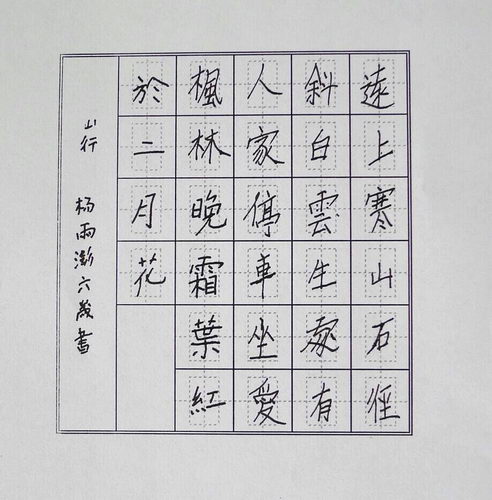 遠上寒山石徑
斜白雲生處有
人家停車坐愛
楓林晚霜葉紅
於二月花
山行 杨雨澎六歲書